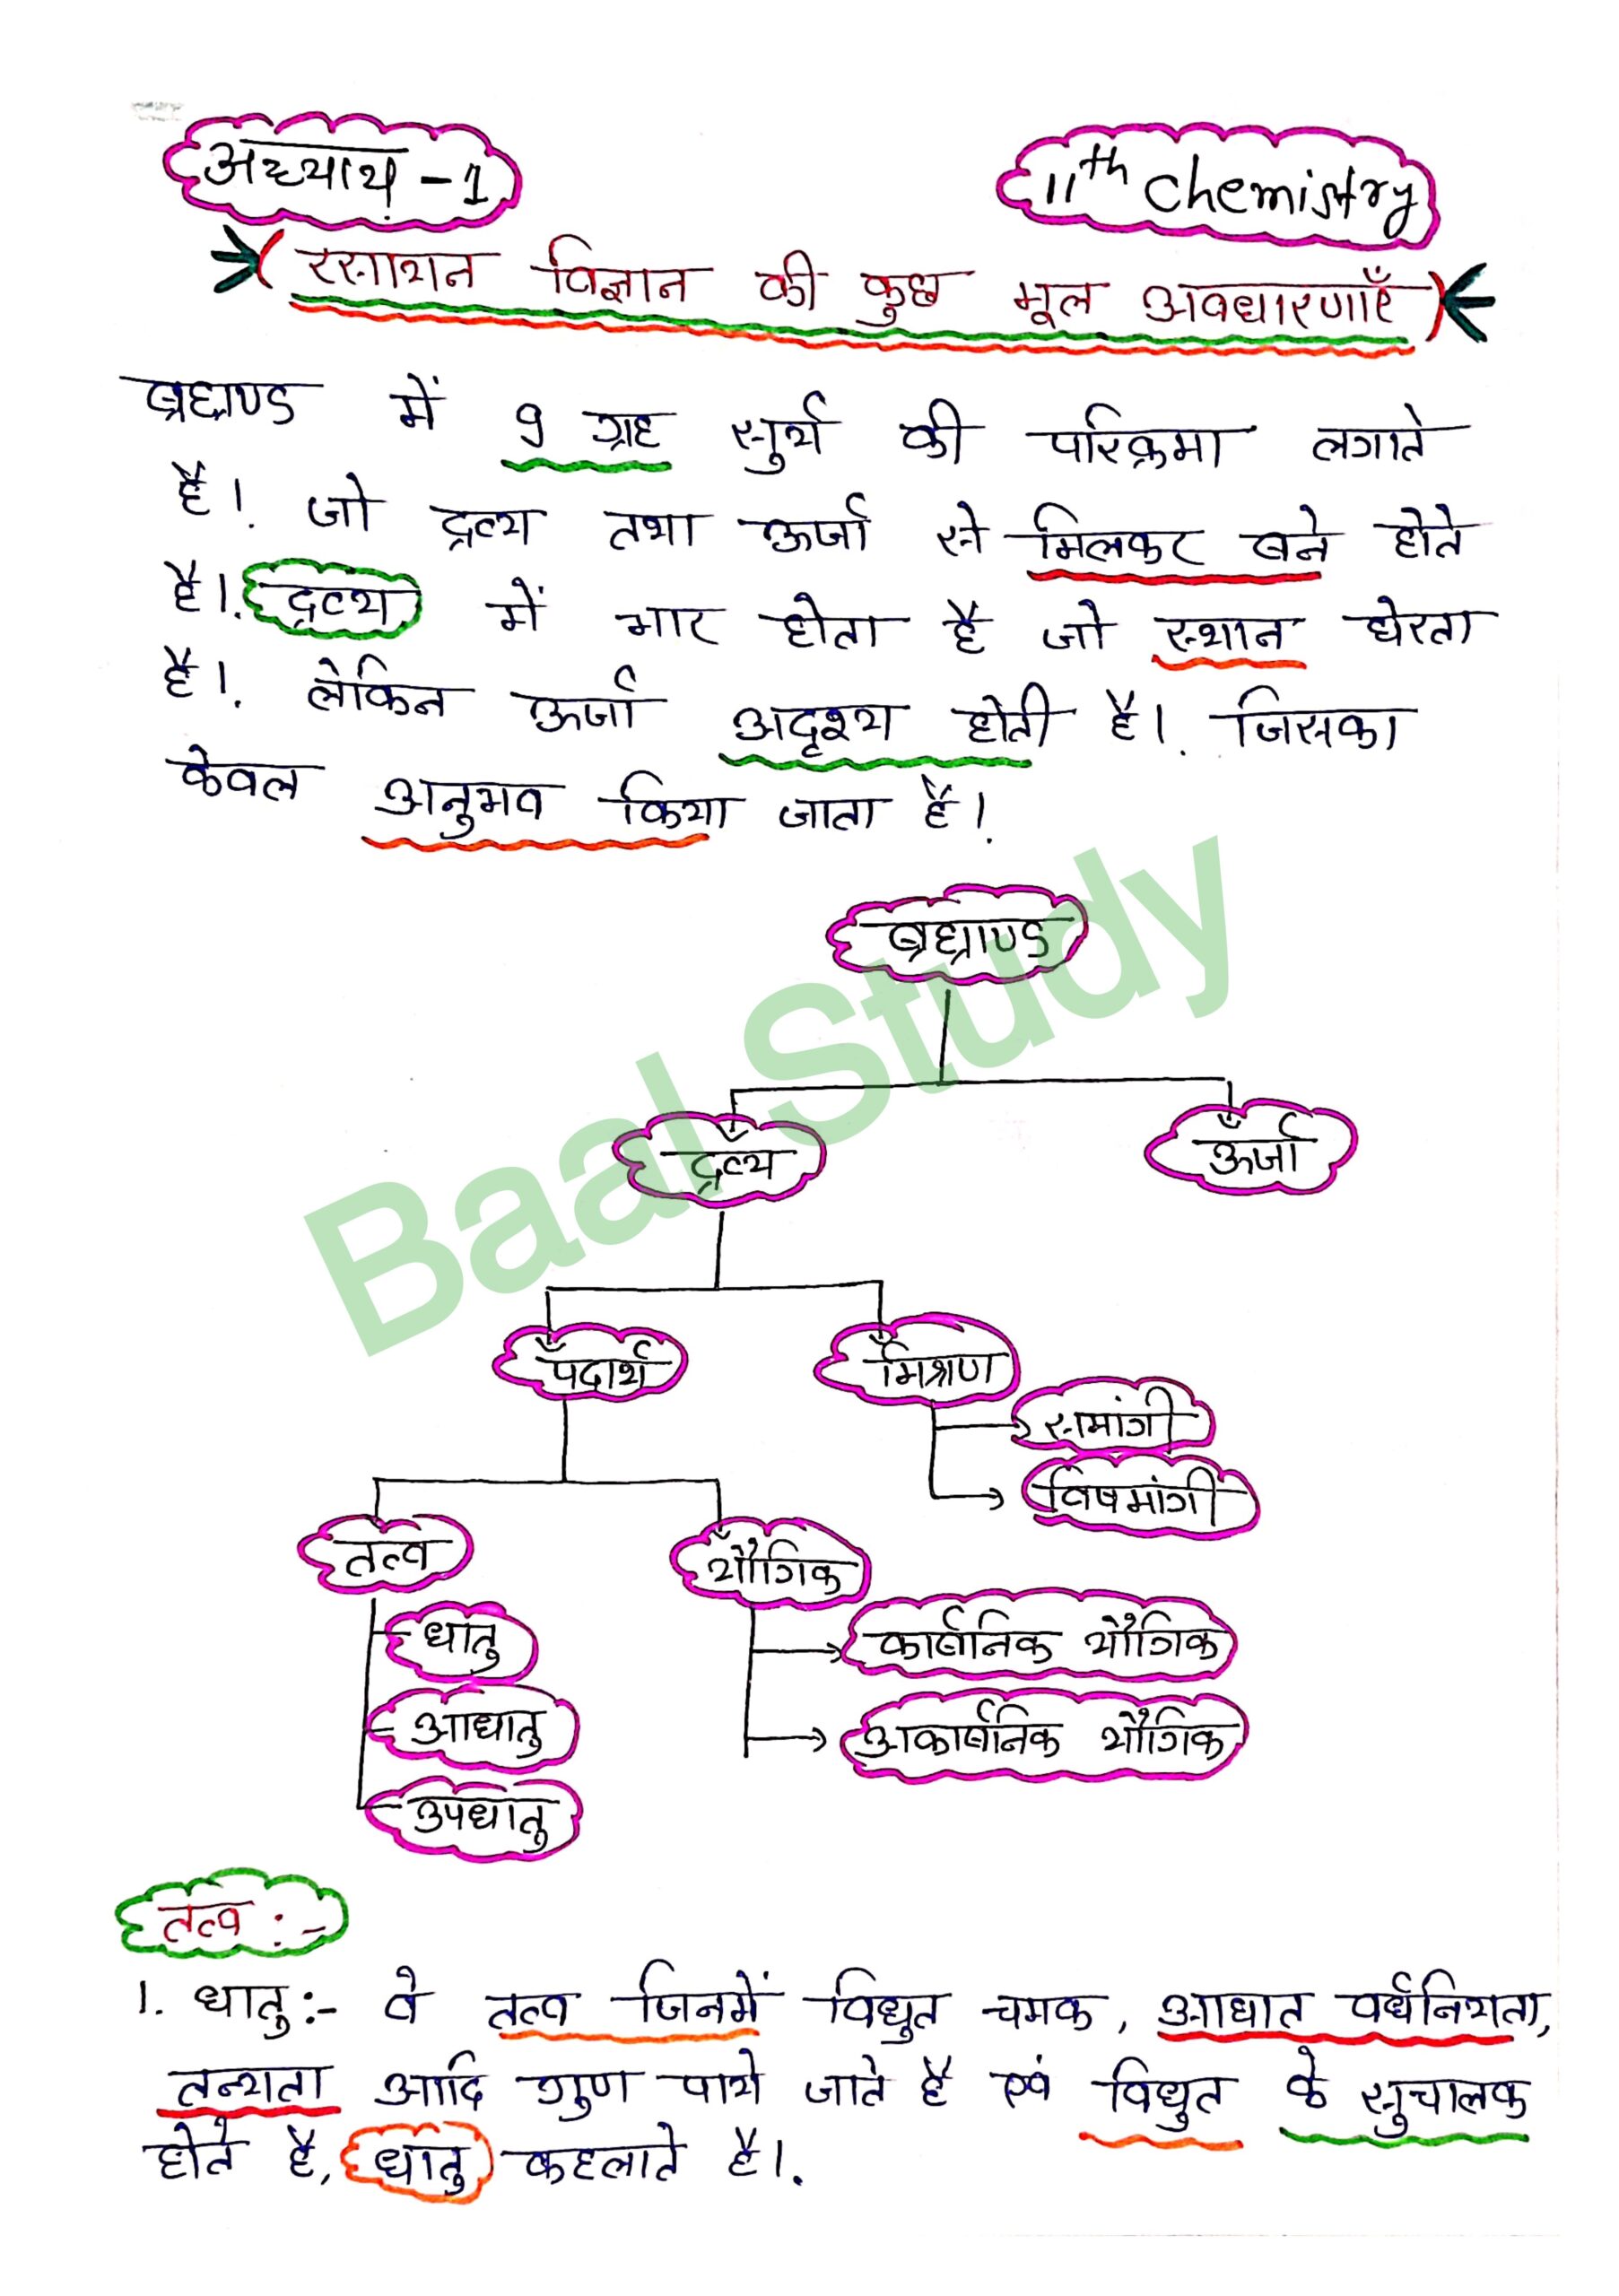 अध्याय - 1
11th Chemistry
रसायन विज्ञान की कुछ मूल अवधारणाएँ
ब्रह्माण्ड में 9 ग्रह सुर्य की परिक्रमा लगाते
है। जो द्रव्य तथा ऊर्जा से मिलकर बने होते
है। द्रव्य में भार होता है जो स्थान घेरता
है। लेकिन ऊर्जा अदृश्य होती है। जिसका
केवल अनुभव किया जाता है।
ब्रह्माण्ड
द्रव्य
ऊर्जा
पदार्थ
मिश्रण
समांगी
विषमांगी
तत्व
यौगिक
धातु
कार्बनिक यौगिक
आधातु
अकार्बनिक यौगिक
उपधातु
Baal Study
तत्व :-
1. धातु:- वे तत्व जिनमें विधुत चमक, आधात वर्धनियता,
तन्यता आदि गुण पाये जाते है एवं विधुत के सुचालक
होते है, धातु कहलाते है।